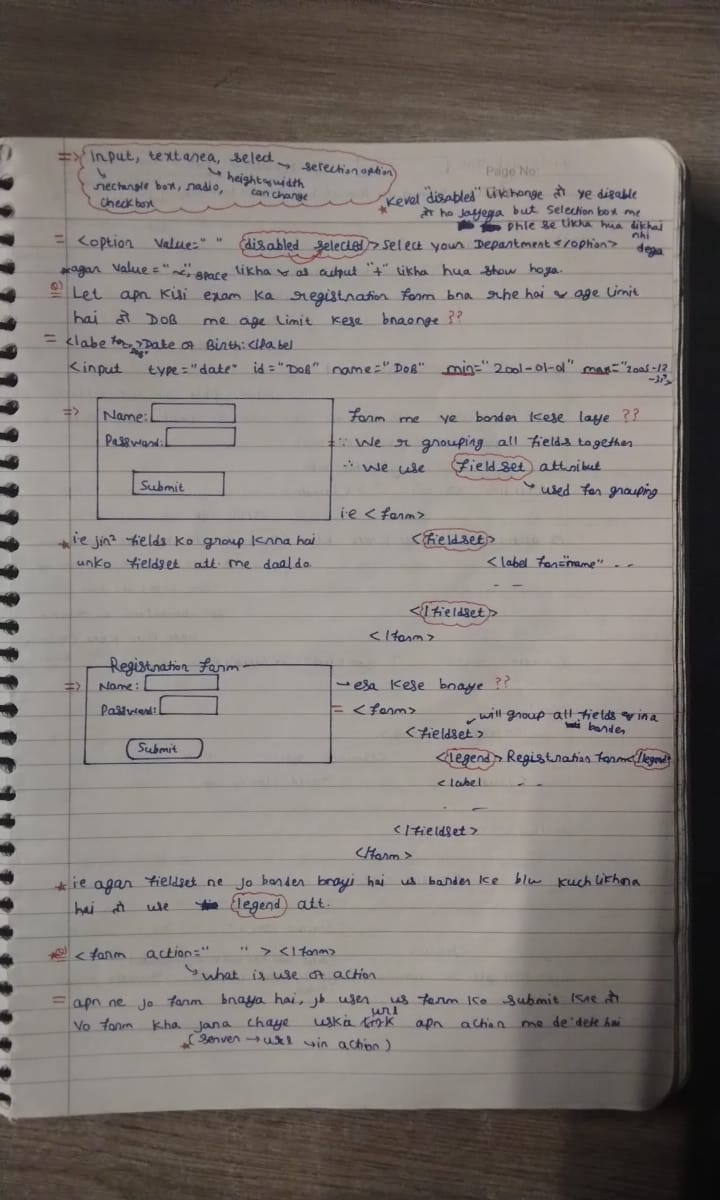 Page No:
=> Input, textarea, select → selection option
rectangle box, radio, checkbox
height & width can change
* Keval "disabled" likhonge to ye disable
to ho jayega but selection box me
phle se likha hua dikhai
nhi dega
= <option value=" " disabled selected> Select your Department </option>
* agar value=" space likha & as output "+" likha hua show hoga.
Q) Let apn kisi exam ka registration form bna rhe hai & age limit
hai to DOB me age limit kese bnaonge ??
= <labe for= >Date of Birth:</label
<input type="date" id="DOB" name="DOB" min="2001-01-01" max="2005-12-31">
=> Name:
Password:
Submit
form me ye border kese laye ??
∵ We r grouping all fields together
∴ We use fieldset attribut
↳ used for grouping
ie <form>
<fieldset>
<label for="name" - -
- -
</fieldset>
</form>
* ie jin² fields ko group krna hai
unko fieldset att. me daal do
=> Registration form
Name:
Password:
Submit
→ esa kese bnaye ??
= <form>
will group all fields & in a
border
<fieldset>
<legend> Registration form </legend>
<label - -
- -
</fieldset>
</form>
* ie agar fieldset ne jo border bnayi hai us border ke b/w kuch likhna
hai to use legend att.
*Q) <form action=" " > </form>
↳ what is use of action
= apn ne jo form bnaya hai, jb user us form ko submit kre to
vo form kha jana chaye uska url apn action me de dete hai
* (server → url ↳ in action)